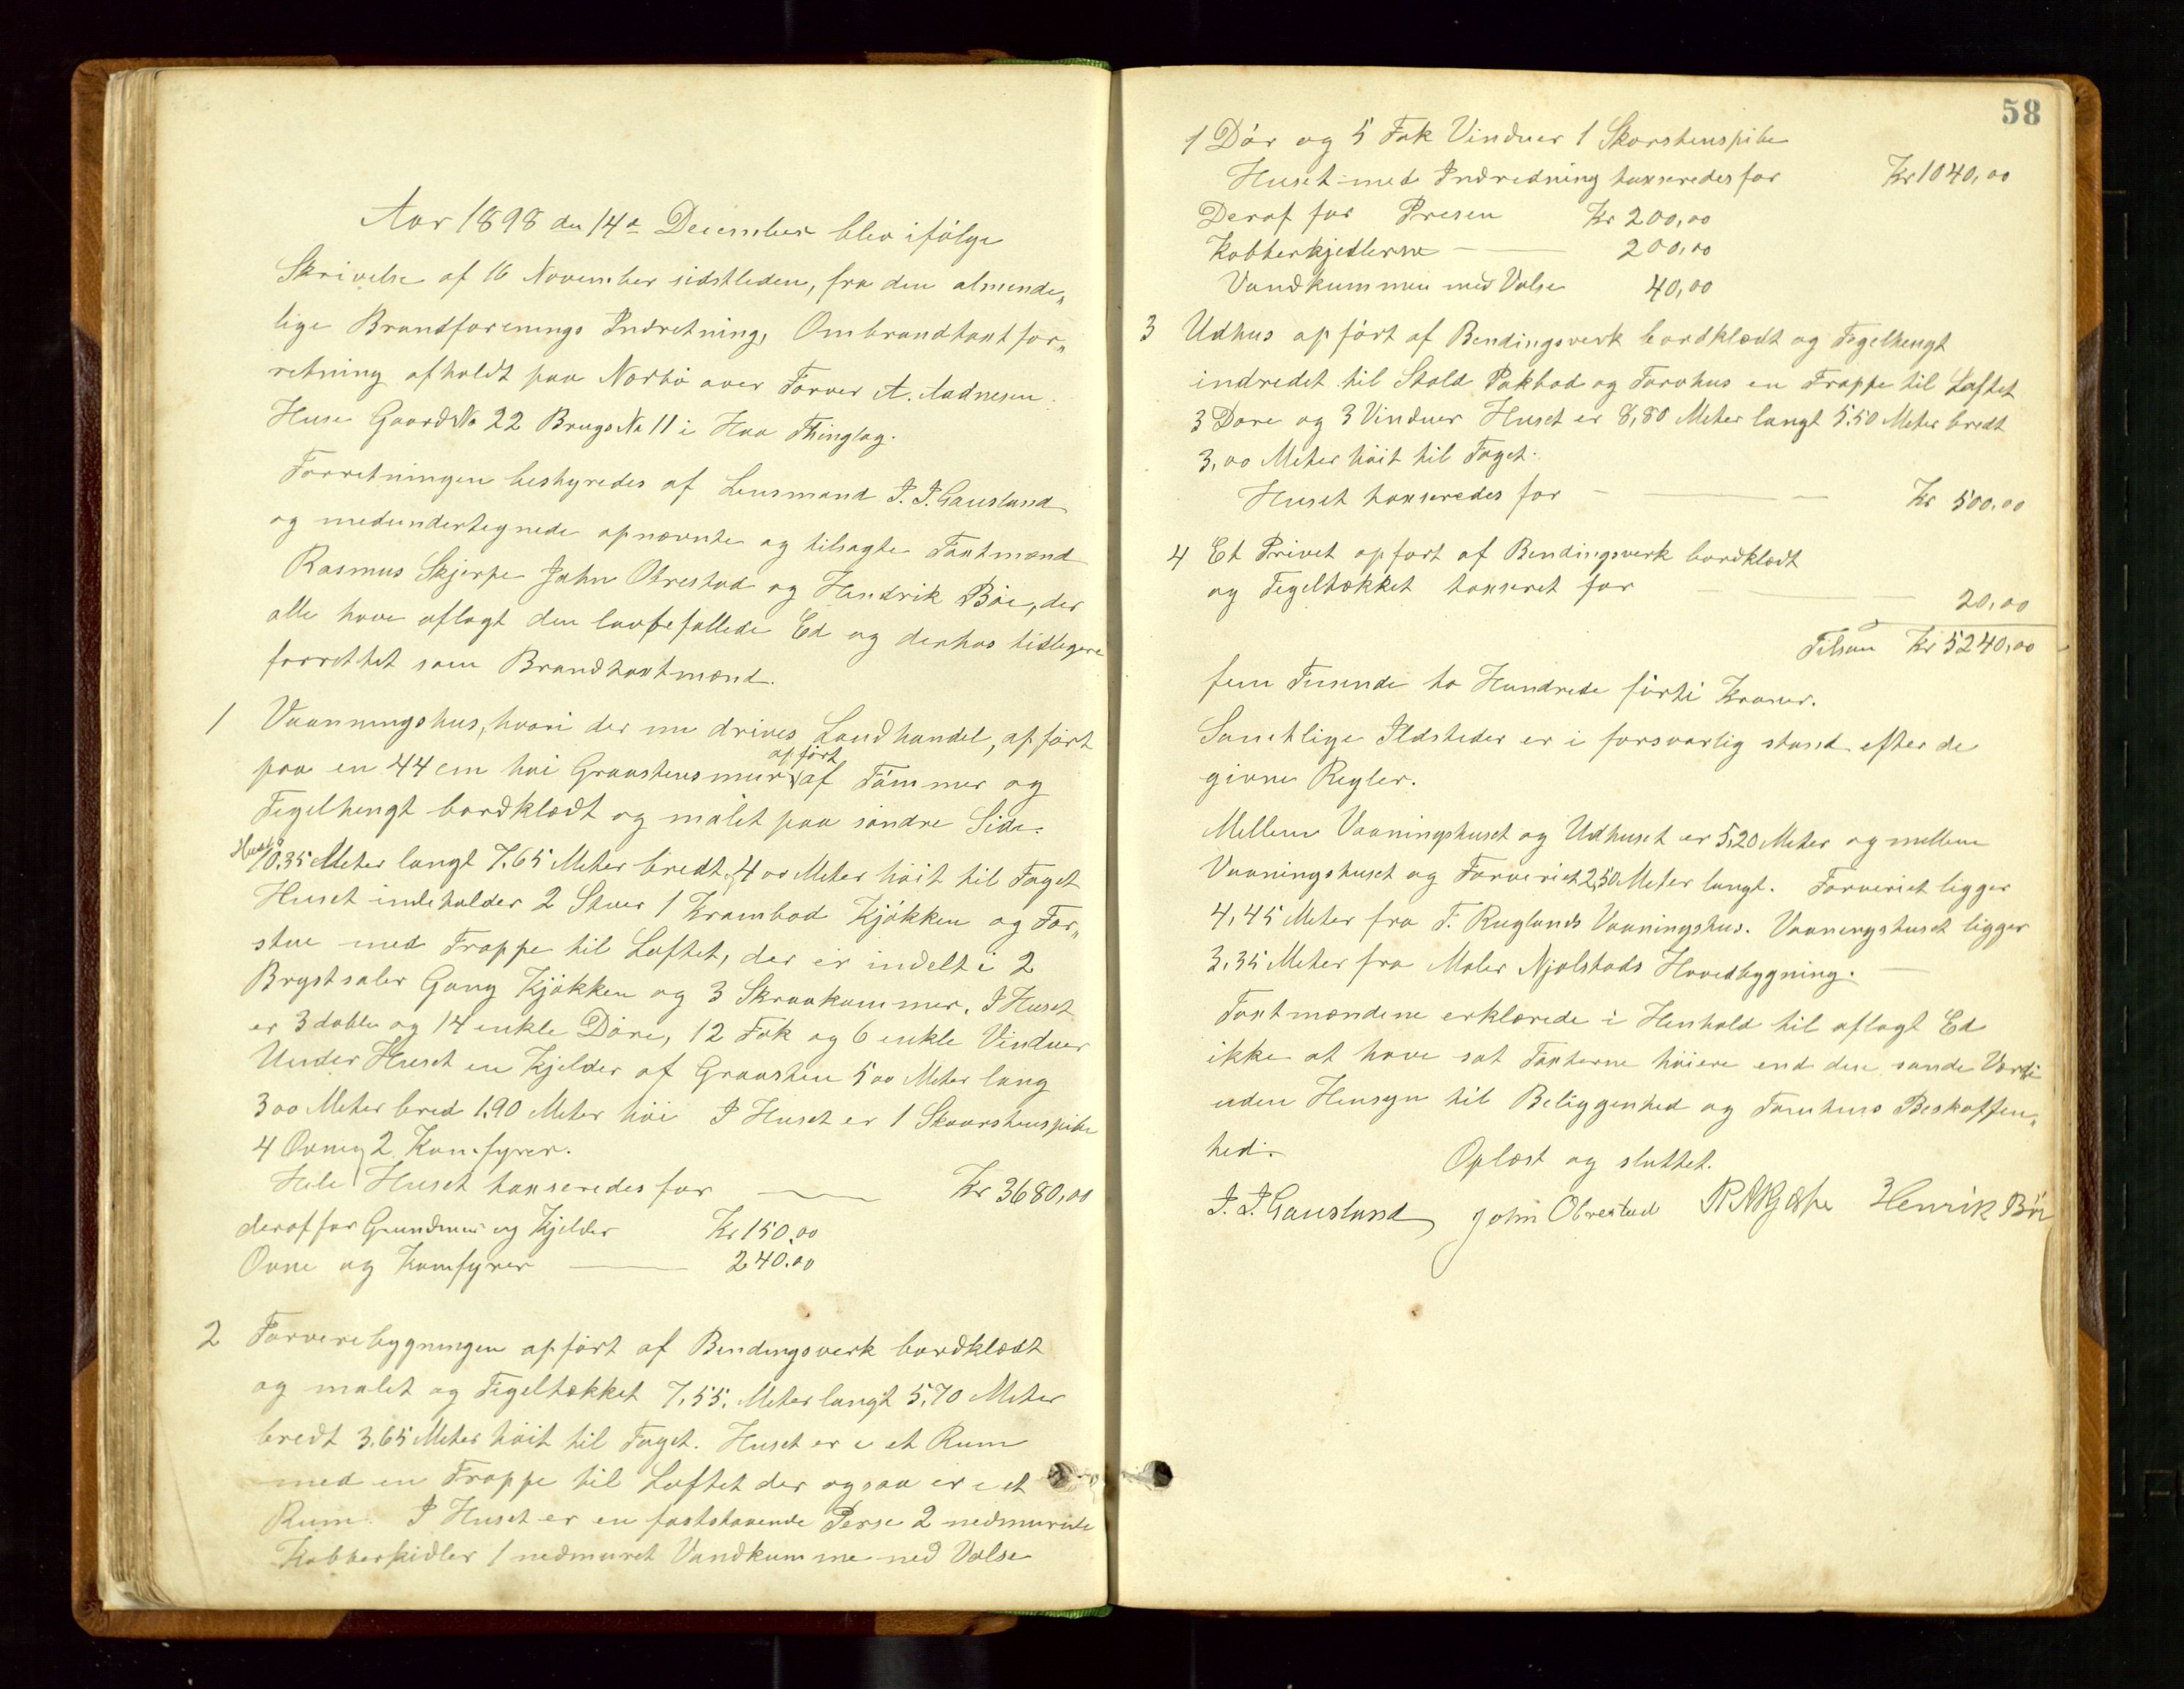 Aar 1898 den 14de December blev ifølge
Skrivelse af 16 November sidstleden, fra den alminde„
lige Brandforenings Indretning, Ombrandtaxtfor„
retning afholdt paa Nærbø over Farver A. Aadnesen
Huse Gaards No 22 Brugs No 11 i Haa Thinglag.
Forretningen bestyredes af Lensmand J. J. Gausland
og medundertegnede opnævnte og tilsagte Taxtmænd
Rasmus Skjerpe John Obrestad og Hendrik Bøe, der
alle have aflagt den lovbefallede Ed og derhos tidligere
forrettet som Brandtaxtmænd.
1 Vaaningshus, hvori der nu drives Landhandel, opført
opført
paa en 44 cm høi Graastensmur af Tømmer og
Tegelhengt bordklædt og malet paa søndre Side.
Huset
10.35 Meter langt 7.65 Meter bredt, 4 00 Meter høit til Taget
Huset indeholder 2 Stuer 1 Krambod Kjøkken og For„
stue med Trappe til Loftet, der er indelt i 2
Brystsaler Gang Kjøkken og 3 Skraakammer. I Huset
er 3 doble og 14 enkle Døre, 12 Fak og 6 enkle Vinduer
Under Huset en Kjelder af Graasten 5 00 Meter lang
3 00 Meter bred 1.90 Meter høi I Huset er 1 Skaarstenspibe
4 Ovne og 2 Komfyrer.
Hele Huset taxseredes for Kr 3680,00
deraf for Grundmur og Kjelder Kr 150.00
Ovne og Komfyrer 240.00
2 Farveribygningen opført af Bendingsverk bordklædt
og malet og Tegeltækket 7.55. Meter langt 5.70 Meter
bredt 3.65 Meter høit til Taget. Huset er i et Rum
med en Trappe til Loftet der ogsaa er i et
Rum. I Huset er en faststaaende Perse 2 nedmurede
Kobberkidler 1 nedmuret Vandkumme med Valse
58
1 Dør og 5 Fak Vinduer 1 Skorstenspibe
Huset med Indredning taxseredes for Kr 1040,00
Deraf for Presen Kr 200,00
Kobberkjedlerne 200,00
Vandkummen med Valse 40,00
3 Udhus opført af Bendingsverk bordklædt og Tegelhengt
indredet til Stald Pakbod og Torvhus en Trappe til Loftet
3 Døre og 3 Vinduer Huset er 8,80 Meter langt 5.50 Meter bredt
3,00 Meter høit til Taget.
Huset taxseredes for Kr 500,00
4 Et Privet opført af Bendingsverk bordklædt
og Tegeltækket taxseret for 20,00
Tilsam Kr 5240,00
fem Tusinde to Hundrede førti Kroner.
Samtlige Ildsteder er i forsvarlig stand efter de
givne Regler.
Mellem Vaaningshuset og Udhuset er 5,20 Meter og mellem
Vaaningshuset og Farveriet 2,50 Meter langt. Farveriet ligger
4,45 Meter fra T. Ruglands Vaaningshus. Vaaningshuset ligger
3.35 Meter fra Maler Njølstads Hovedbygning.
Taxtmændene erklærede i Henhold til aflagt Ed
ikke at have sat Taxterne høiere end den sande Værdi
uden Hensyn til Beliggenhed og Tomtens Beskaffen„
hed.
Oplæst og sluttet.
J. J. Gausland John Obrestad R Skjerpe Henrik Bö